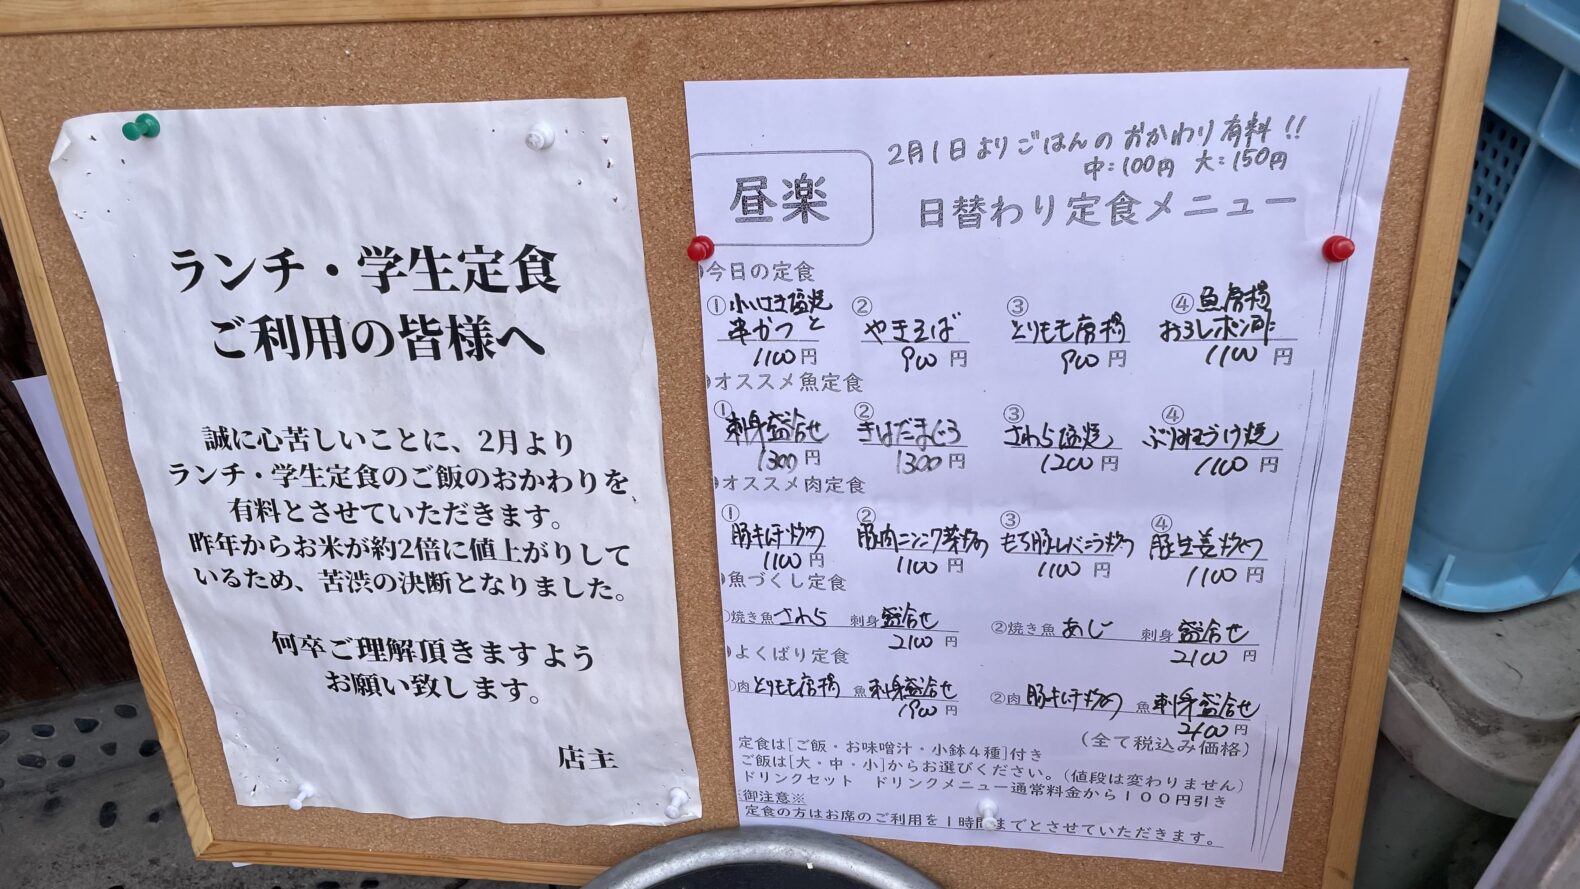 ランチ・学生定食
ご利用の皆様へ
誠に心苦しいことに、2月より
ランチ・学生定食のご飯のおかわりを
有料とさせていただきます。
昨年からお米が約2倍に値上がりして
いるため、苦渋の決断となりました。
何卒ご理解頂きますよう
お願い致します。
店主
2月1日よりごはんのおかわり有料!!
中:100円 大:150円
昼楽
日替わり定食メニュー
今日の定食
① 塩焼 ② ③ ④
串かつと やきそば とりもも おろしポン酢
1100円 900円 900円 1100円
オススメ魚定食
① ② ③ ④
刺身盛合せ きはだまぐろ さわら塩焼 ぶりみそづけ焼
1300円 1300円 1200円 1100円
オススメ肉定食
① ② ③ ④
豚キムチ炒め 豚肉ニンニク芽炒め もち豚レバニラ炒め 豚生姜炒め
1100円 1100円 1100円 1100円
魚づくし定食
焼き魚 さわら 刺身 盛合せ ②焼き魚 あじ 刺身 盛合せ
2100円 2100円
よくばり定食
肉 とりもも 魚 刺身盛合せ ②肉 豚キムチ炒め 魚 刺身盛合せ
1900円 2100円
(全て税込み価格)
定食は[ご飯・お味噌汁・小鉢4種]付き
ご飯は[大・中・小]からお選びください。(値段は変わりません)
ドリンクセット ドリンクメニュー通常料金から100円引き
御注意※
定食の方はお席のご利用を1時間までとさせていただきます。